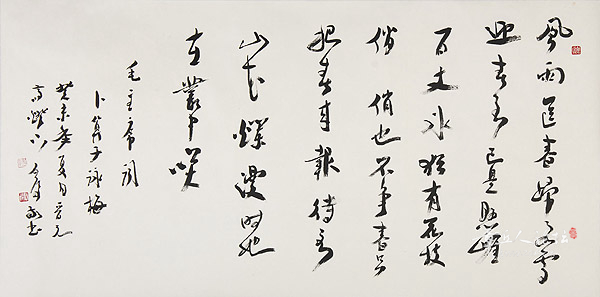 風雨送春歸飞雪
迎春到已是懸崖
百丈冰猶有花枝
俏 俏也不争春只
把春来報待到
山花爛漫时她
在叢中笑
毛主席词
卜算子咏梅
癸未年夏月